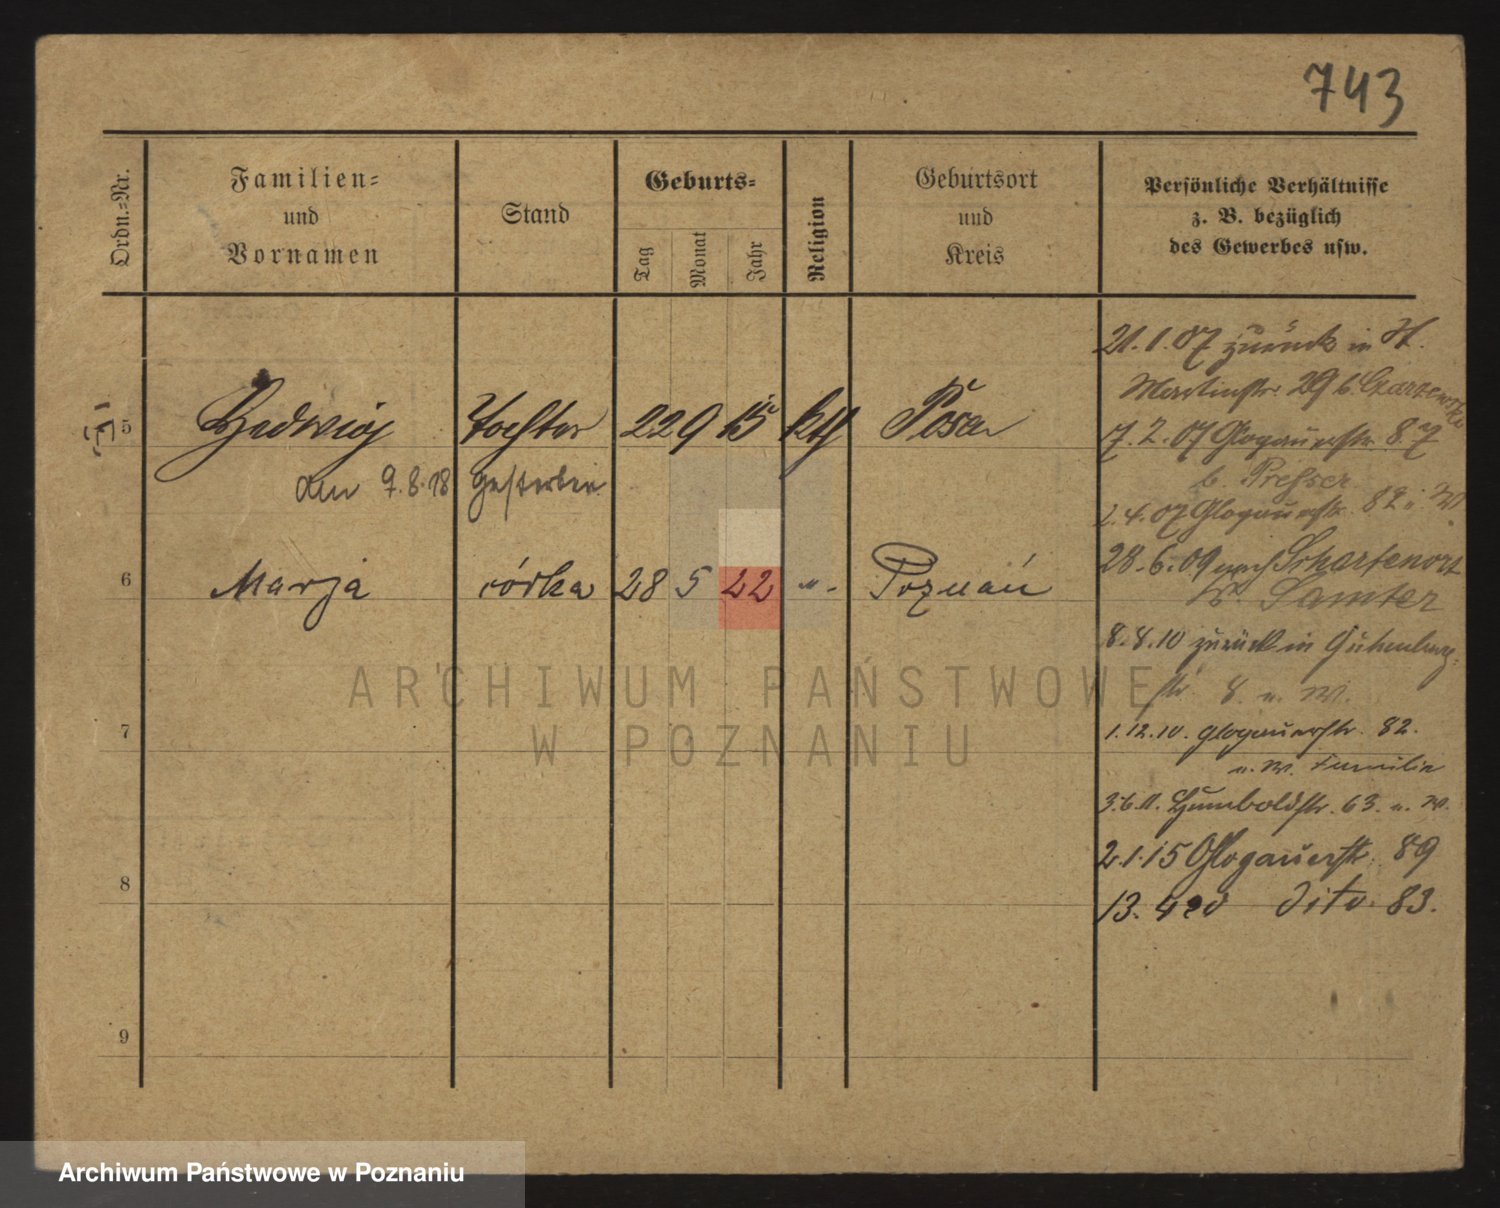 743
Ordn.-Nr.
Familien-
und
Vornamen
Stand
Geburts-
Tag
Monat
Jahr
Religion
Geburtsort
und
Kreis
Persönliche Verhältnisse
z. B. bezüglich
des Gewerbes usw.
21.1.07 zurück in St.
Martinstr. 29 b.
5 Hedwig Tochter 22 9 15 kth Posen
17.2.07 Glogauerstr. 8.
am 9.8.18 gestorben
b. Presser
2.4.07 Glogauerstr. 82 u. W.
6 Marja córka 28 5 22 " - Poznań
28.6.09 nach Scharfenort
Kr. Samter
8.8.10 zurück in Gutenberg-
str. 8 u. W.
7
1.12.10. Glogauerstr. 82.
u. W. Familie
3.6.11. Humboldstr. 63. u. W.
2.1.15 Glogauerstr. 89
8
13.420 dito. 83.
9
ARCHIWUM PAŃSTWOWE
W POZNANIU
Archiwum Państwowe w Poznaniu